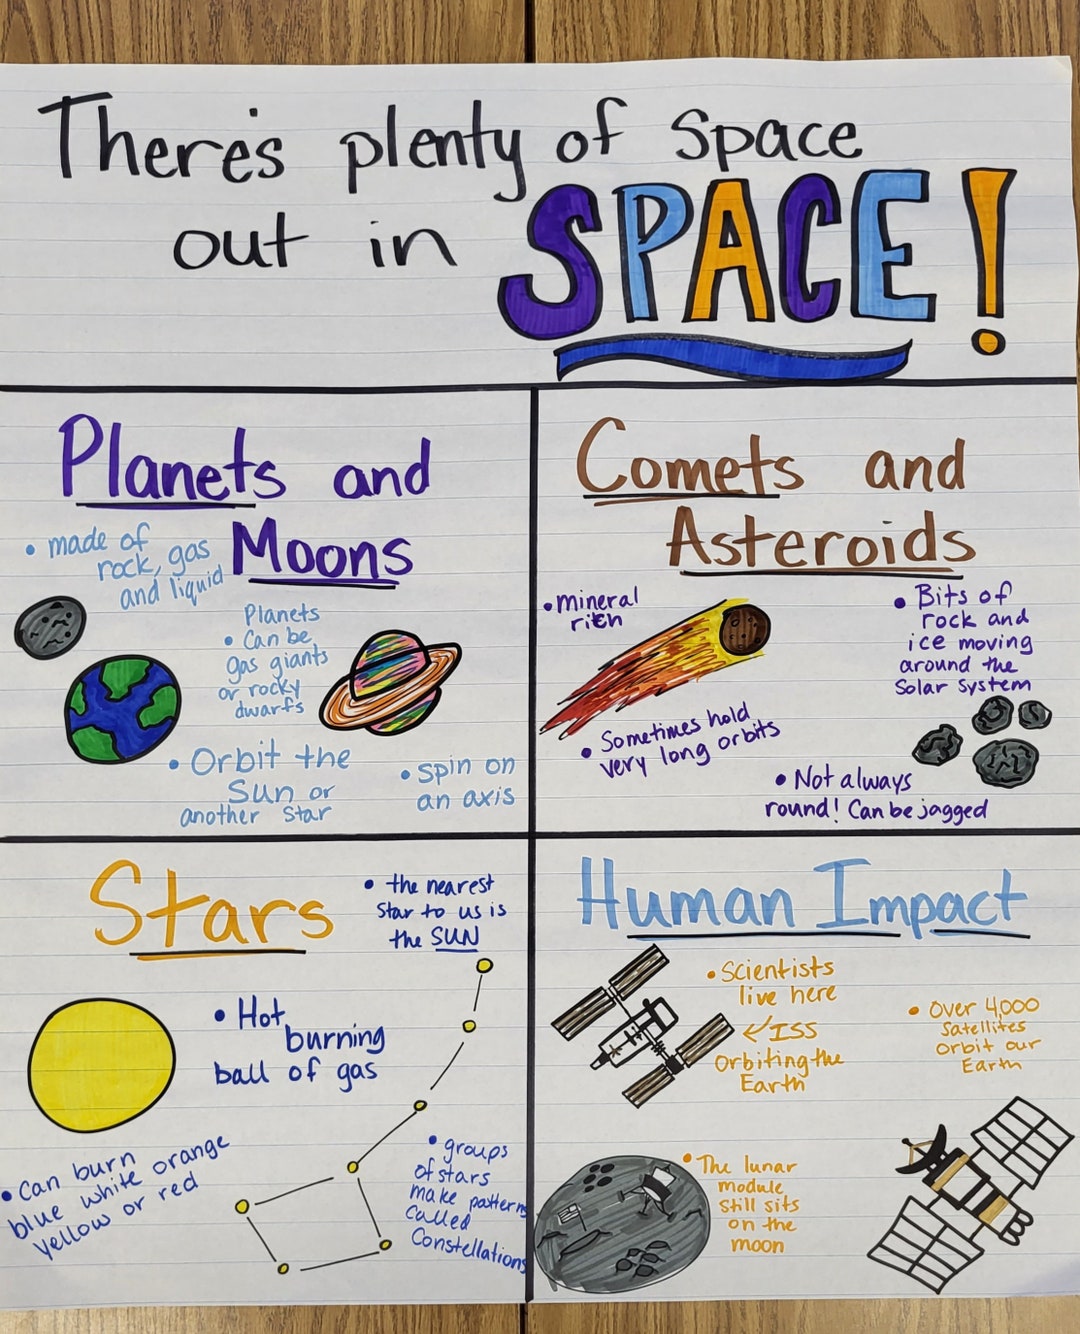 There's plenty of Space
out in SPACE!
Planets and
Moons
• made of
rock, gas
and liquid
Planets
• Can be
gas giants
or rocky
dwarfs
• Orbit the
Sun or
another star
• spin on
an axis
Comets and
Asteroids
• Mineral
rich
• Bits of
rock and
ice moving
around the
Solar System
• Sometimes hold
very long orbits
• Not always
round! Can be jagged
Stars
• the nearest
star to us is
the SUN
• Hot
burning
ball of gas
• Can burn
blue white orange
yellow or red
• groups
of stars
make patterns
called
Constellations
Human Impact
• Scientists
live here
ISS
Orbiting the
Earth
• Over 4,000
Satellites
orbit our
Earth
• The lunar
module
still sits
on the
moon